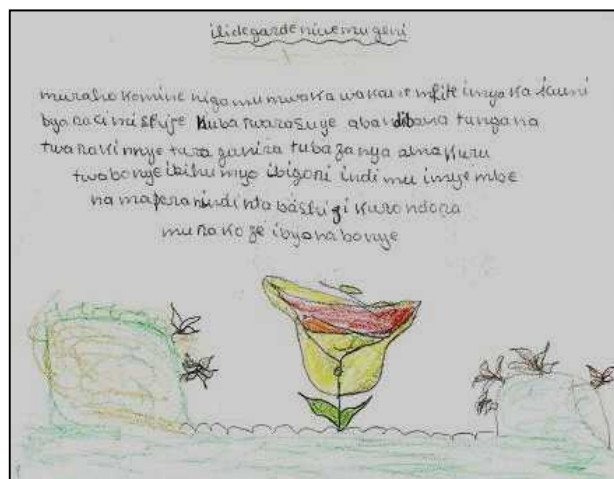 ilidegarde niyemugeni
muraho komine niga mu mwaka wakane mfite imyaka icumi
byaracimishije kuba twarasuye abandi bana tungana
twarakinnye turaganira tubazanya amakuru
twabonye ibihumyo ibigori indimu imyembe
na mapera nindi ntabashigikurondora
murakoze ibyo nabonye